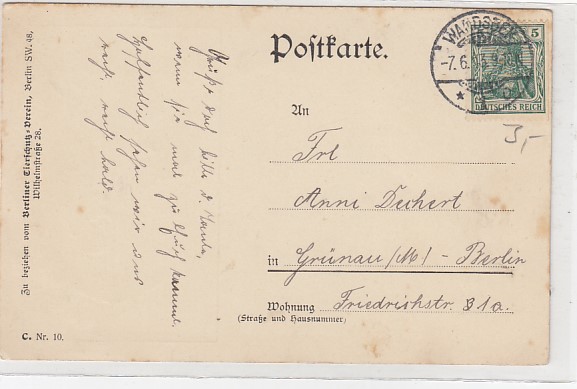 Zu beziehen vom Berliner Tierschutz-Verein, Berlin SW. 48,
Wilhelmstraße 28.
Grüße doch bitte d. Tante,
wenn sie mal zu Euch kommt.
Hoffentlich sehen wir uns
recht recht bald.
C. Nr. 10.
Postkarte.
WANDSBEK
-7.6.
5
DEUTSCHES REICH
3,-
An
Frl
Anni Deckert
in Grünau (M) - Berlin
Wohnung Friedrichstr. 31a.
(Straße und Hausnummer)